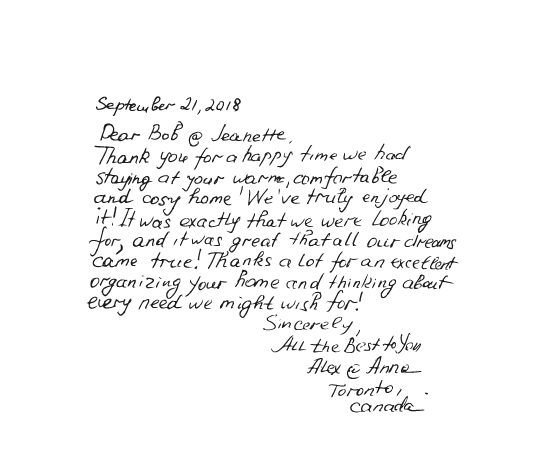 September 21, 2018
Dear Bob @ Jeanette,
Thank you for a happy time we had
staying at your warm, comfortable
and cosy home! We've truly enjoyed
it! It was exactly that we were looking
for, and it was great that all our dreams
came true! Thanks a lot for an excellent
organizing your home and thinking about
every need we might wish for!
Sincerely,
All the Best to You
Alex @ Anna
Toronto,
Canada